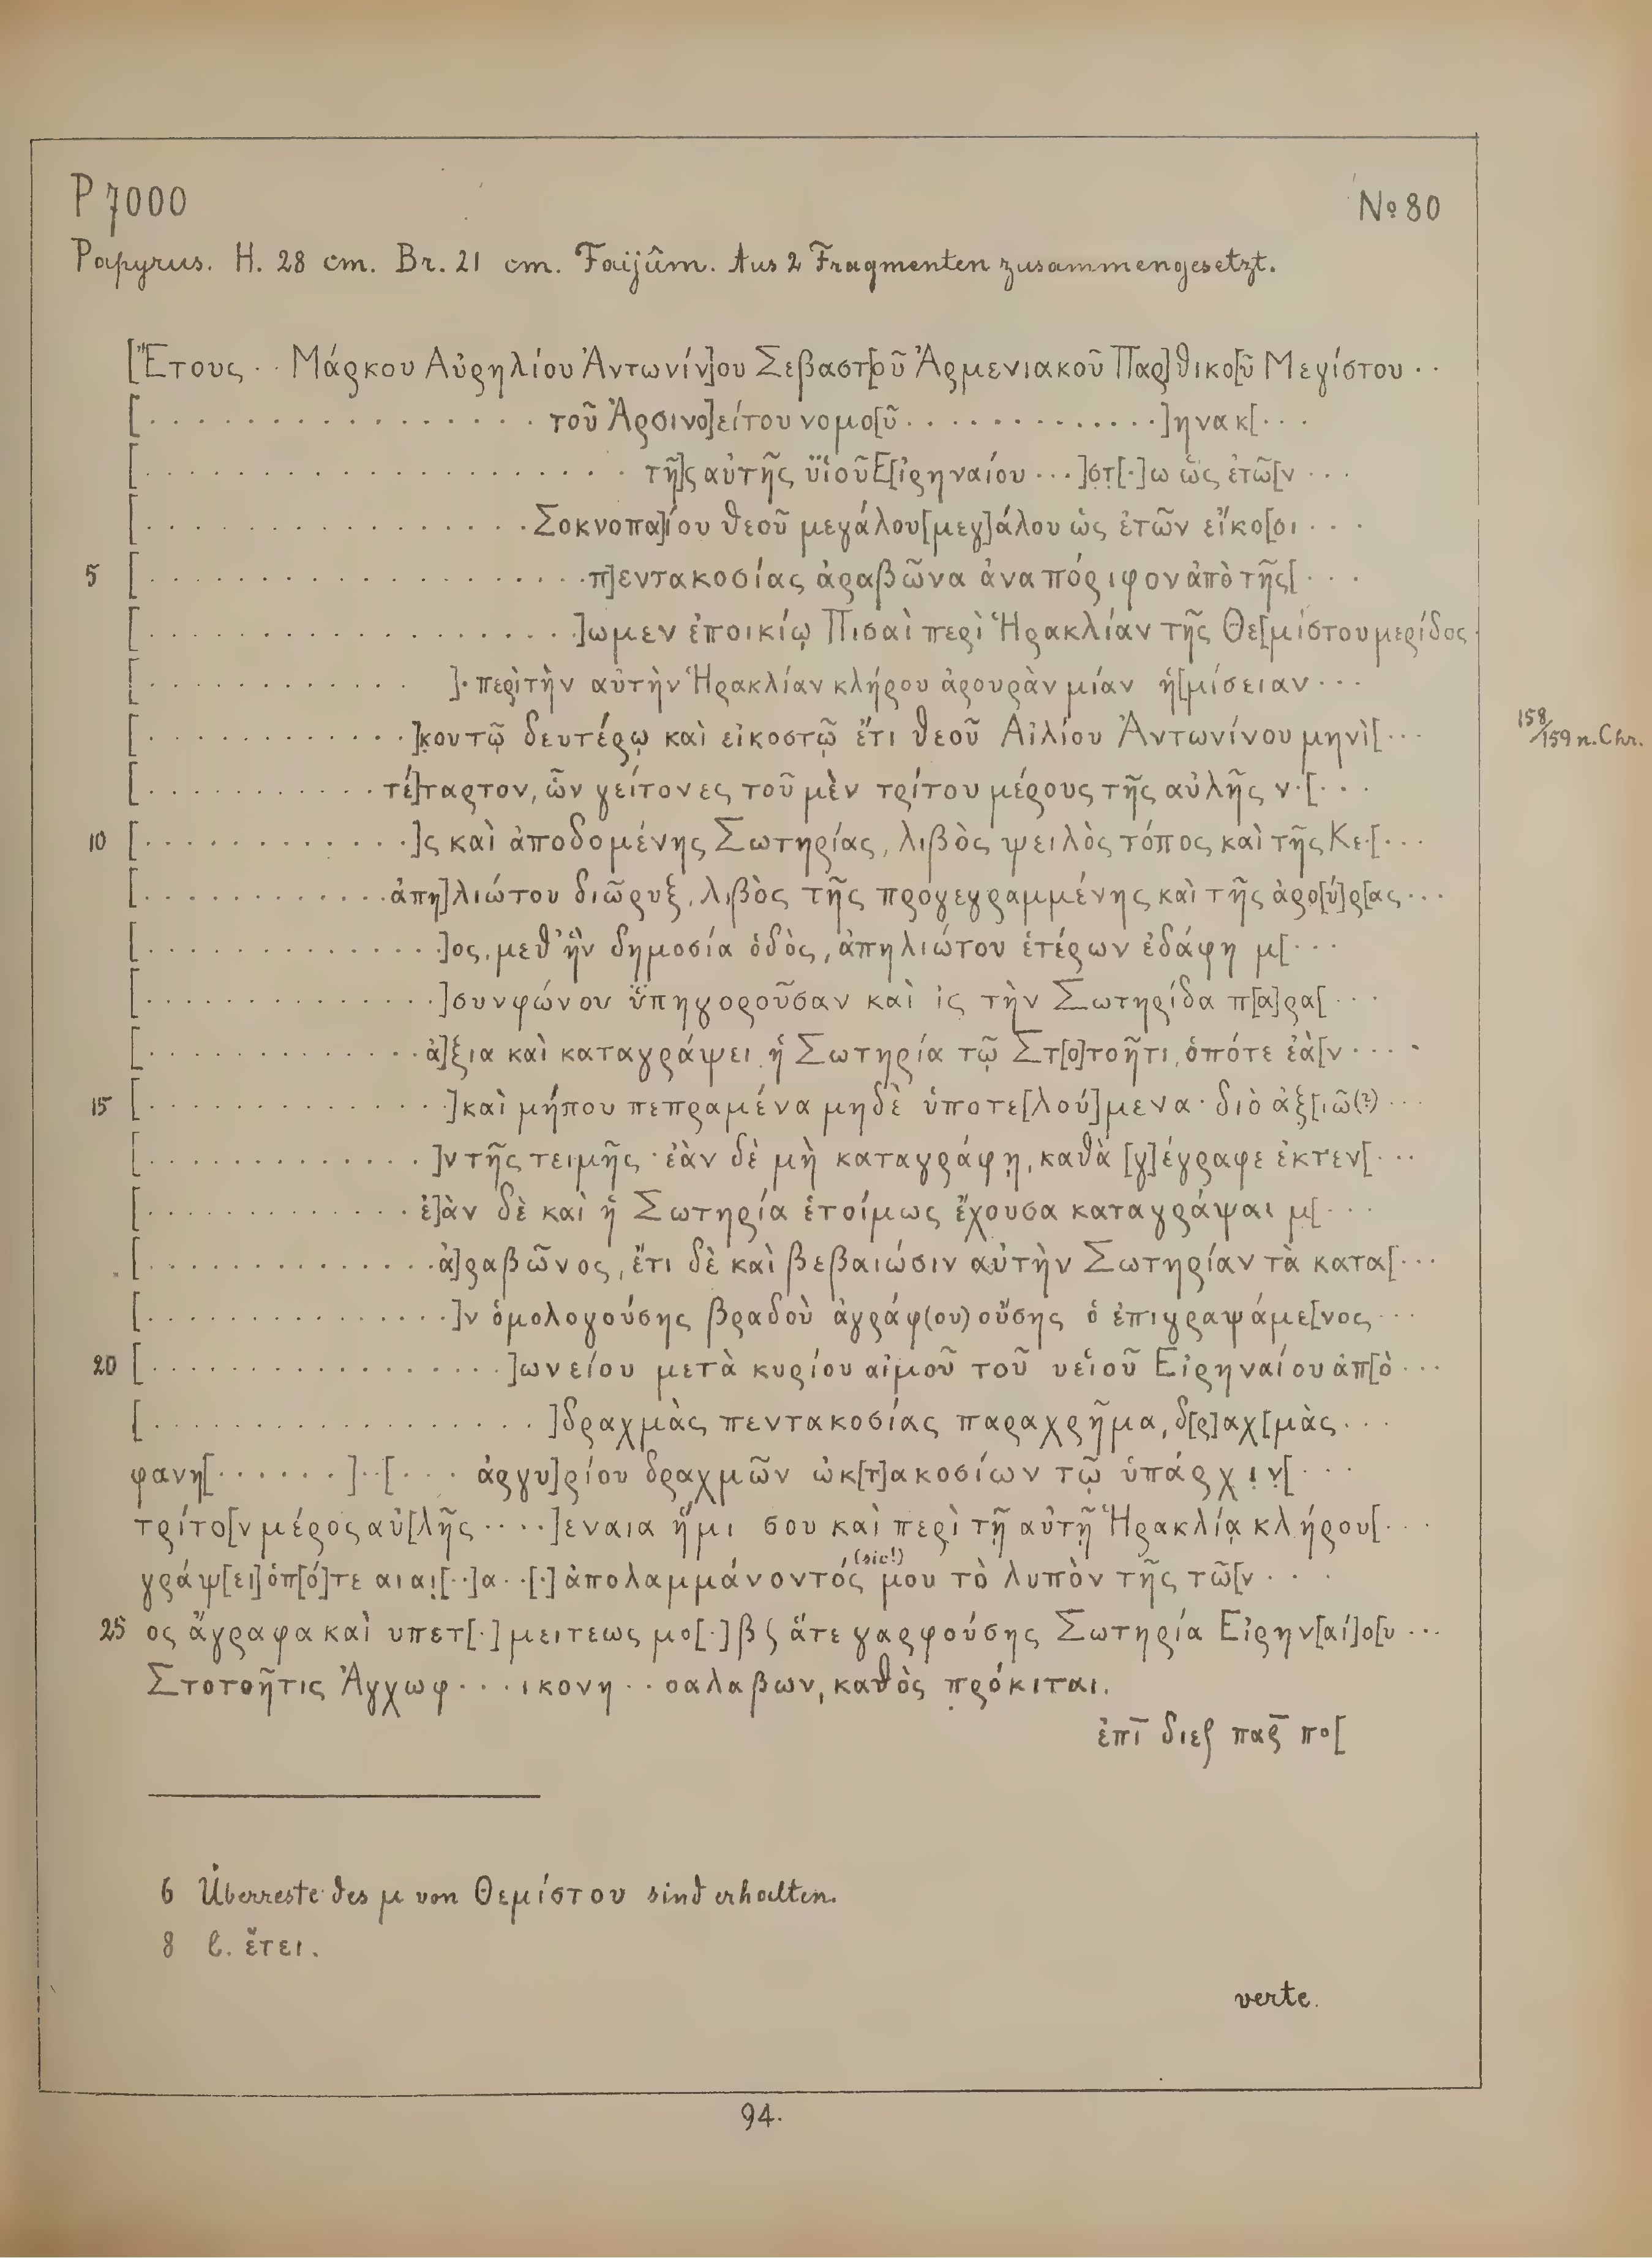 P 7000
№ 80
Papyrus. H. 28 cm. Br. 21 cm. Faijûm. Aus 2 Fragmenten zusammengesetzt.
[Ἔτους . . Μάρκου Αὐρηλίου Ἀντωνίν]ου Σεβαστ[οῦ Ἀρμενιακοῦ Παρ]θικο[ῦ Μεγίστου . .
[. . . . . . . . . . . . . . . . . τοῦ Ἀρσινο]είτου νομο[ῦ . . . . . . . . . . . . . ]ηνακ[. . .
[. . . . . . . . . . . . . . . . . . . . . τῆ]ς αὐτῆς ὑϊοῦ Ε[ἰρηναίου . . . ]στ[.]ω ὡς ἐτῶ[ν . . .
[. . . . . . . . . . . . . . . . . Σοκνοπα]ίου θεοῦ μεγάλου [μεγ]άλου ὡς ἐτῶν εἴκο[σι . . .
5 [. . . . . . . . . . . . . . . . . . . π]εντακοσίας ἀραβῶνα ἀναπόριφον ἀπὸ τῆς[ . . .
[. . . . . . . . . . . . . . . . . . . ]ωμεν ἐποικίῳ Πισαὶ περὶ Ἡρακλίαν τῆς Θε[μίστου μερίδος .
[. . . . . . . . . . . . ]. περὶ τὴν αὐτὴν Ἡρακλίαν κλήρου ἀρουρὰν μίαν ἡ[μίσειαν . . .
[. . . . . . . . . . . . ]κου τῷ δευτέρῳ καὶ εἰκοστῷ ἔτι θεοῦ Αἰλίου Ἀντωνίνου μηνὶ[ . . .
158/159 n. Chr.
[. . . . . . . . . . . τέ]ταρτον, ὧν γείτονες τοῦ μὲν τρίτου μέρους τῆς αὐλῆς ν.[. . .
10 [. . . . . . . . . . . . . ]ς καὶ ἀποδομένης Σωτηρίας, λιβὸς ψειλὸς τόπος καὶ τῆς Κε.[. . .
[. . . . . . . . . . . . ἀπη]λιώτου διῶρυξ, λιβὸς τῆς προγεγραμμένης καὶ τῆς ἀρο[ύ]ρ[ας . . .
[. . . . . . . . . . . . . . ]ος, μεθ' ἣν δημοσία ὁδὸς, ἀπηλιώτου ἑτέρων ἐδάφη μ[. . .
[. . . . . . . . . . . . . . ]συνφώνου ὑπηγοροῦσαν καὶ ἰς τὴν Σωτηρίδα π[α]ρα[ . . .
[. . . . . . . . . . . . . ἀ]ξια καὶ καταγράψει ἡ Σωτηρία τῷ Στ[ο]τοῆτι, ὁπότε ἐὰ[ν . . . .
15 [. . . . . . . . . . . . . . ]καὶ μήπου πεπραμένα μηδὲ ὑποτε[λού]μενα · διὸ ἀξ[ιῶ(?) . . .
[. . . . . . . . . . . . . ]ν τῆς τειμῆς · ἐὰν δὲ μὴ καταγράφῃ, καθὰ [γ]έγραφε ἐκτεν[. . .
[. . . . . . . . . . . . . ἐ]ὰν δὲ καὶ ἡ Σωτηρία ἑτοίμως ἔχουσα καταγράψαι μ[. . .
[. . . . . . . . . . . . . . ἀ]ραβῶνος, ἔτι δὲ καὶ βεβαιώσιν αὐτὴν Σωτηρίαν τὰ κατα[. . .
[. . . . . . . . . . . . . . ]ν ὁμολογούσης βραδοὺ ἀγράφ(ου) οὔσης ὁ ἐπιγραψάμε[νος . . .
20 [. . . . . . . . . . . . . . . . . ]ωνείου μετὰ κυρίου αἰμοῦ τοῦ υεἱοῦ Εἰρηναίου ἀπ[ὸ . . .
[. . . . . . . . . . . . . . . . . . ]δραχμὰς πεντακοσίας παραχρῆμα, δ[ρ]αχ[μὰς . . .
φανη[. . . . . . ] . . [. . . ἀργυ]ρίου δραχμῶν ὠκ[τ]ακοσίων τῷ ὑπάρχιν[ . . .
τρίτο[ν μέρος αὐ[λῆς . . . . ]εναια ἥμισου καὶ περὶ τῇ αὐτῇ Ἡρακλίᾳ κλήρου[. . .
γράψ[ει] ὁπ[ό]τε αιαι[. .]α . . [.] ἀπολαμμάνοντός (sic!) μου τὸ λυπὸν τῆς τῶ[ν . . .
25 ος ἄγραφα καὶ υπετ[.]μειτεως μο[.]βς ἅτε γαρφούσης Σωτηρία Εἰρην[αί]ο[υ . . .
Στοτοῆτις Ἀγχωφ . . . ικονη . . οαλαβων, καθὸς πρόκιται.
ἐπῑ διεϛ παρ̄ πο[
6 Überreste des μ von Θεμίστου sind erhalten.
8 l. ἔτει.
verte.
94.